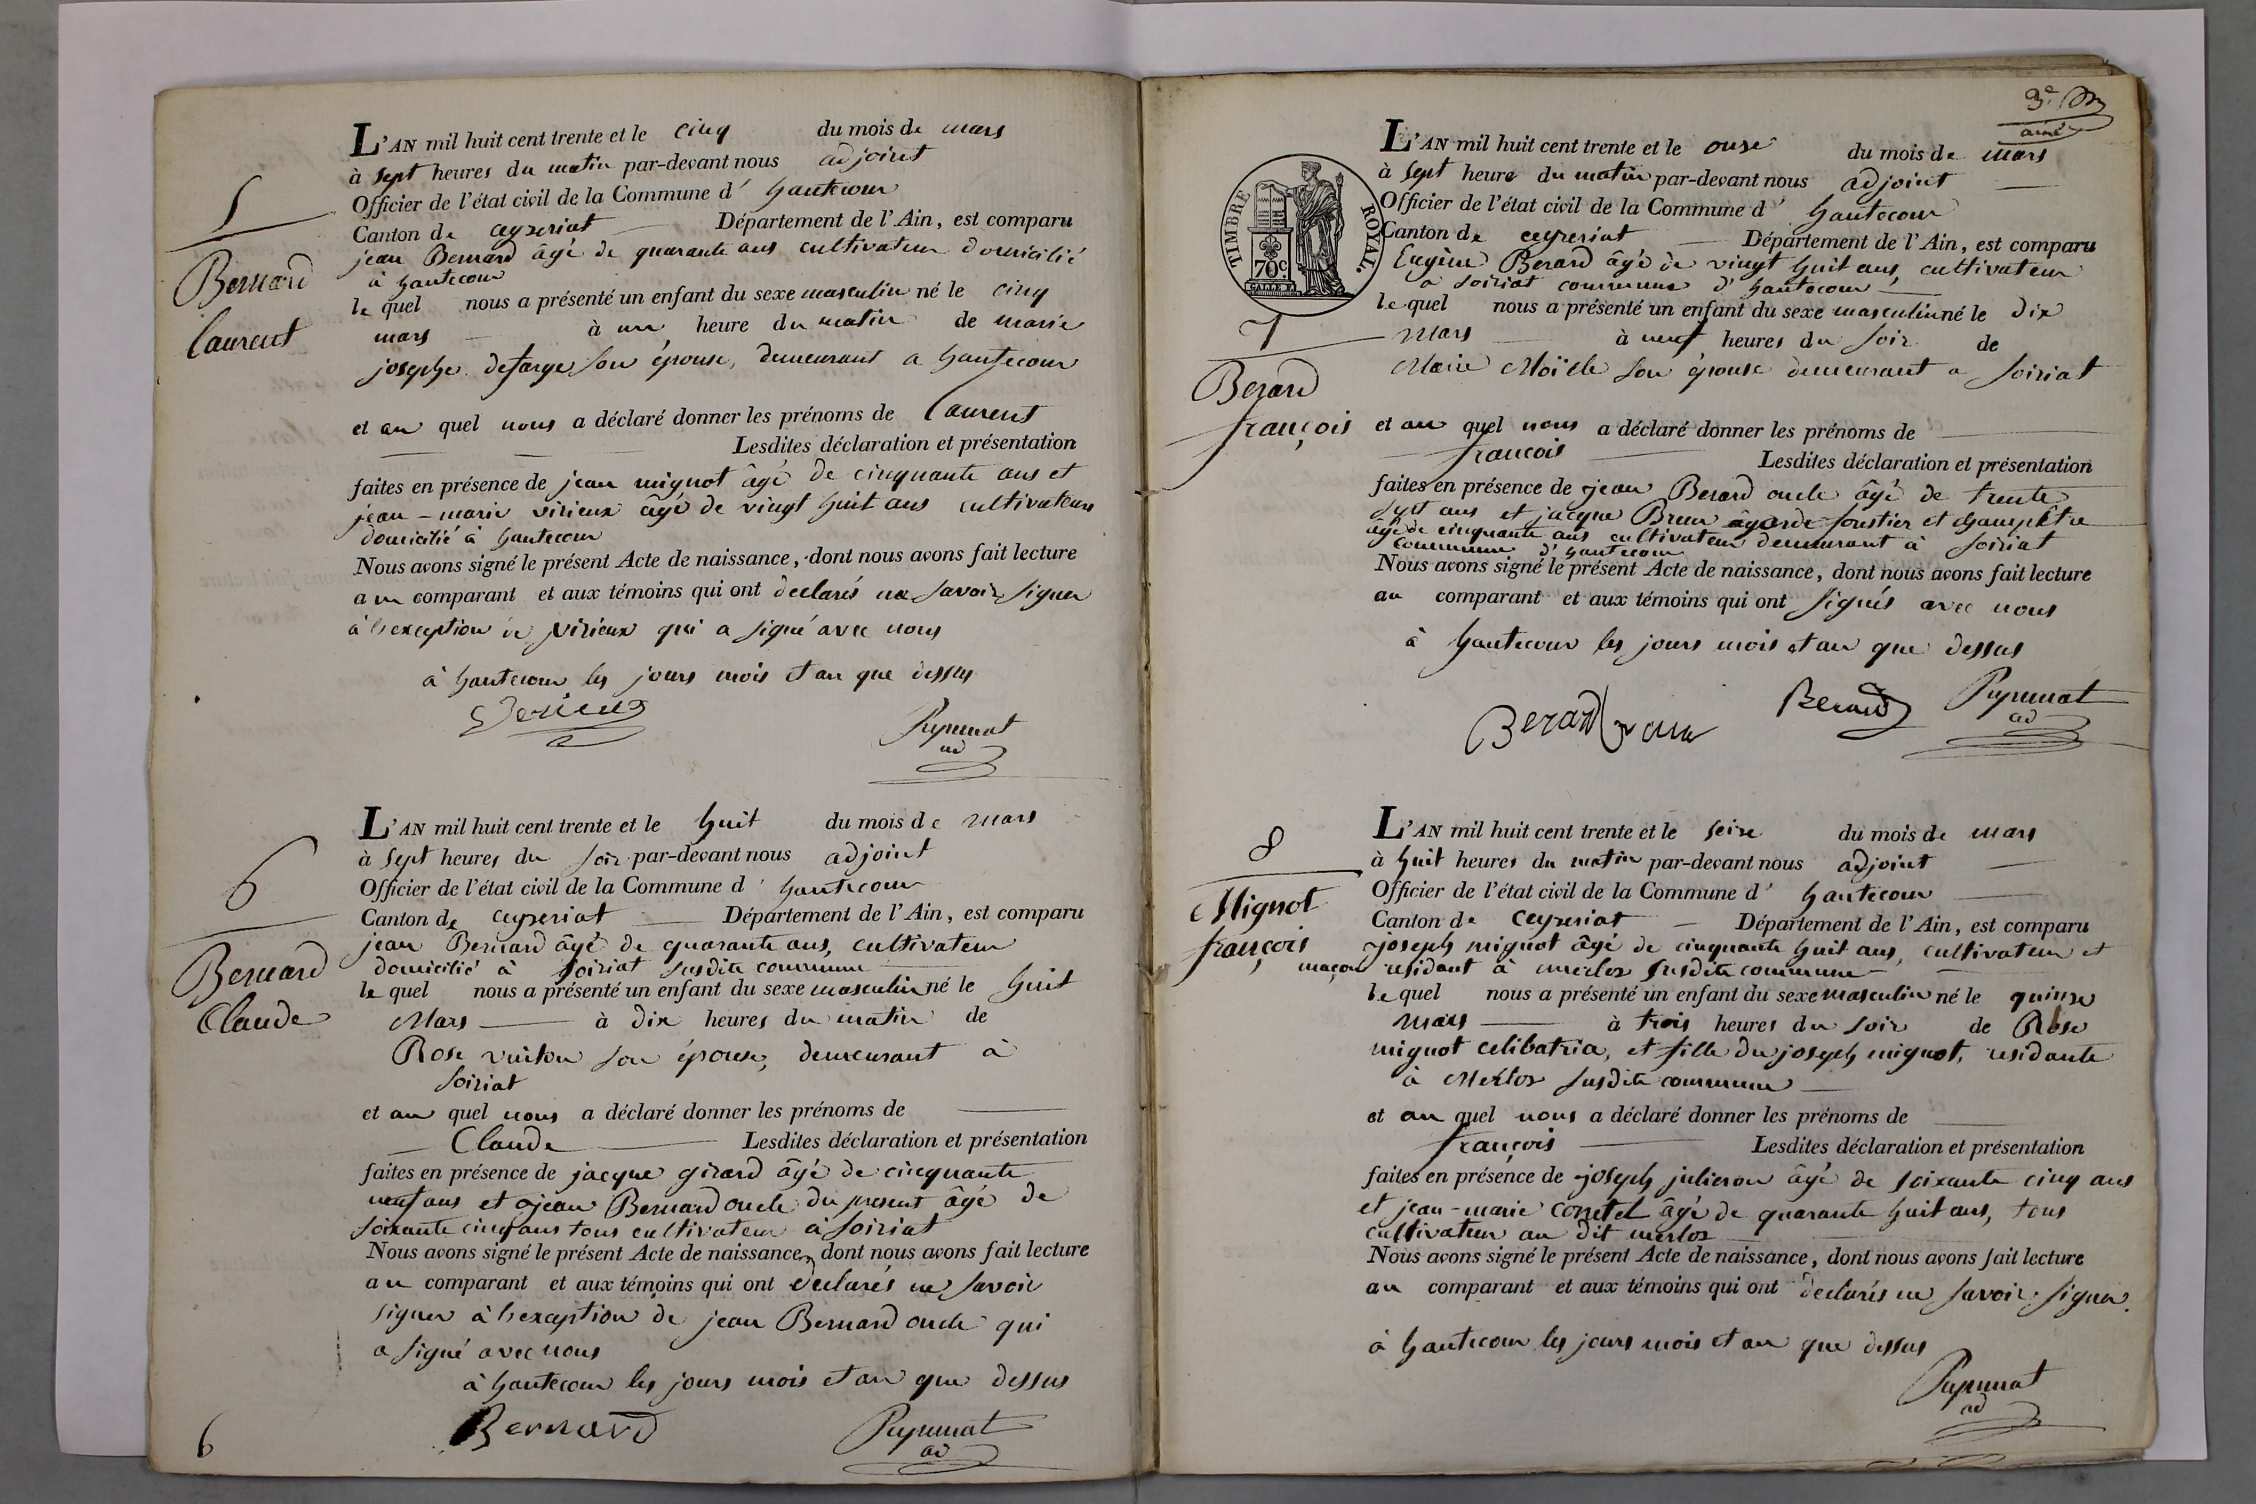 5
Bernard
Laurent
L'AN mil huit cent trente et le cinq du mois de mars
à sept heures du matin par-devant nous adjoint
Officier de l'état civil de la Commune d' hautecour
Canton de ceyzeriat Département de l'Ain, est comparu
jean Bernard âgé de quarante ans cultivateur domicilié
à hautecour
le quel nous a présenté un enfant du sexe masculin né le cinq
mars à un heure du matin de marie
josephe defarge son épouse, demeurant a hautecour
et au quel nous a déclaré donner les prénoms de Laurent
Lesdites déclaration et présentation
faites en présence de jean mignot âgé de cinquante ans et
jean-marie virieux âgé de vingt huit ans cultivateurs
domicilié à hautecour
Nous avons signé le présent Acte de naissance, dont nous avons fait lecture
au comparant et aux témoins qui ont déclarés ne savoir signer
à l'exception de virieux qui a signé avec nous
à hautecour les jours mois et an que dessus
ad
6
Bernard
Claude
L'AN mil huit cent trente et le huit du mois de mars
à sept heures du soir par-devant nous adjoint
Officier de l'état civil de la Commune d' hautecour
Canton de ceyzeriat Département de l'Ain, est comparu
jean Bernard âgé de quarante ans, cultivateur
domicilié à soiriat susdite commune
le quel nous a présenté un enfant du sexe masculin né le huit
Mars à dix heures du matin de
Rose vuiton son épouse, demeurant à
soiriat
et au quel nous a déclaré donner les prénoms de
Claude Lesdites déclaration et présentation
faites en présence de jacque girard âgé de cinquante
neuf ans et jean Bernard oncle du present âgé de
soixante cinq ans tous cultivateur à soiriat
Nous avons signé le présent Acte de naissance, dont nous avons fait lecture
au comparant et aux témoins qui ont déclarés ne savoir
signer à l'exception de jean Bernard oncle qui
a signé avec nous
à hautecour les jours mois et an que dessus
Bernard
ad
6
3e
TIMBRE ROYAL.
70c.
7
Berard
françois
L'AN mil huit cent trente et le onze du mois de mars
à sept heure du matin par-devant nous adjoint
Officier de l'état civil de la Commune d' hautecour
Canton de ceyzeriat Département de l'Ain, est comparu
Eugène Berard âgé de vingt huit ans, cultivateur
a soiriat commune d'hautecour
le quel nous a présenté un enfant du sexe masculin né le dix
Mars à neuf heures du soir de
Marie Moïelle son épouse demeurant a soiriat
et au quel nous a déclaré donner les prénoms de
françois Lesdites déclaration et présentation
faites en présence de jean Berard oncle âgé de trente
sept ans et jacque Brun garde foustier et champêtre
âgé de cinquante ans cultivateur demeurant à soiriat
commune d'hautecour
Nous avons signé le présent Acte de naissance, dont nous avons fait lecture
au comparant et aux témoins qui ont signés avec nous
à hautecour les jours mois et an que dessus
Berard Berard
ad
8
Mignot
françois
L'AN mil huit cent trente et le seize du mois de mars
à huit heures du matin par-devant nous adjoint
Officier de l'état civil de la Commune d' hautecour
Canton de ceyzeriat Département de l'Ain, est comparu
joseph mignot âgé de cinquante huit ans, cultivateur et
maçon residant à merloz susdite commune
le quel nous a présenté un enfant du sexe masculin né le quinze
mars à trois heures du soir de Rose
mignot celibatria, et fille du joseph mignot, residante
à Merloz susdite commune
et au quel nous a déclaré donner les prénoms de
françois Lesdites déclaration et présentation
faites en présence de joseph julieron âgé de soixante cinq ans
et jean-marie contet âgé de quarante huit ans, tous
cultivateur au dit merloz
Nous avons signé le présent Acte de naissance, dont nous avons fait lecture
au comparant et aux témoins qui ont déclarés ne savoir signer.
à hautecour les jours mois et an que dessus
ad